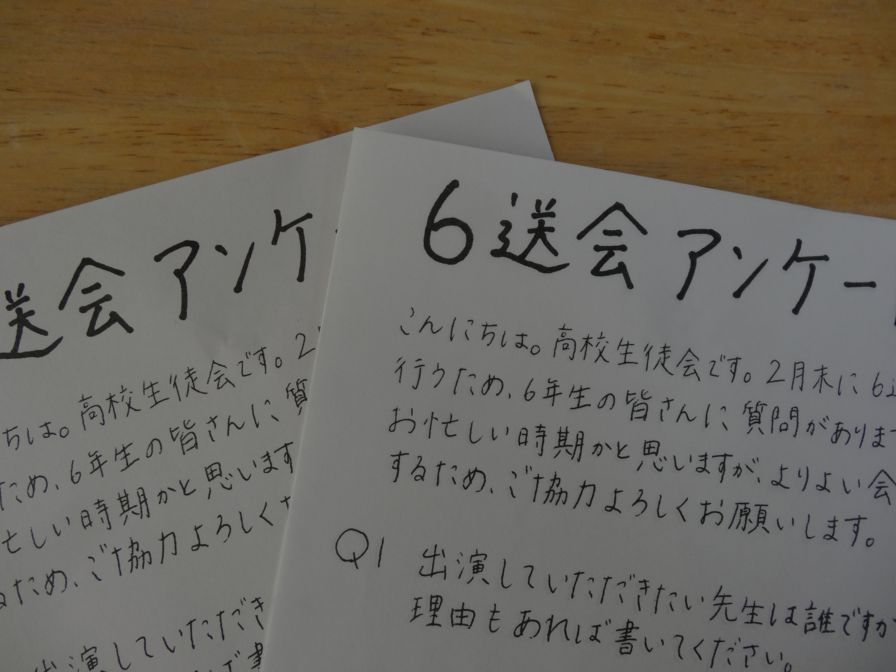 6送会アンケー
こんにちは。高校生徒会です。2月末に6送
行うため、6年生の皆さんに質問がありま
お忙しい時期かと思いますが、よりよい会
するため、ご協力よろしくお願いします。
Q1 出演していただきたい先生は誰ですか
理由もあれば書いてください。
送会アンケ
ちは。高校生徒会です。2
ため、6年生の皆さんに質
忙しい時期かと思います
るため、ご協力よろしく
出演していただき